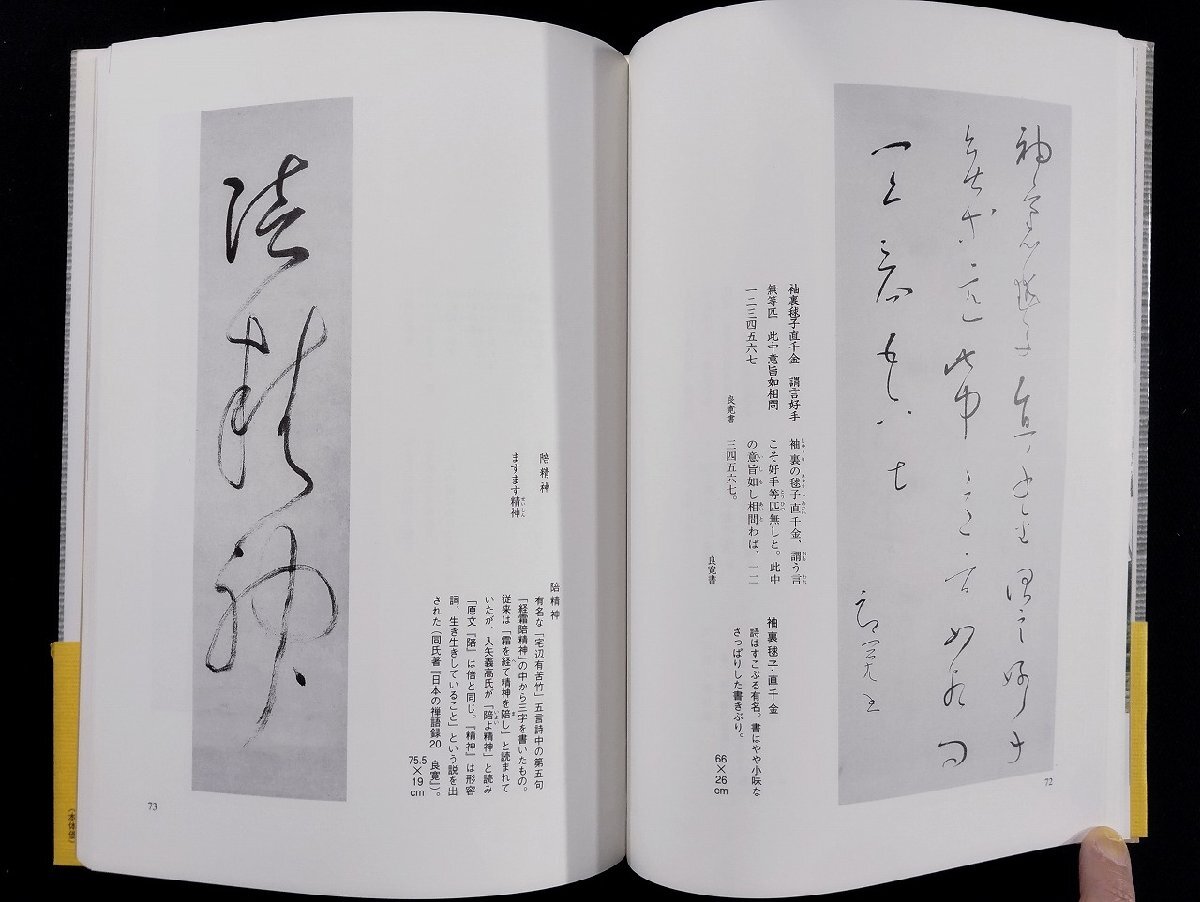 袖裏毬子直千金 謂言好手
無等匹 此中意旨如相問
一二三四五六七
良寛書
袖裏毬子直千金 謂言好手
無等匹 此中意旨如相問
一二三四五六七
良寛書
袖裏の毬子直千金、謂う言
こそ好手等匹無しと。此中
の意旨如し相問わば、一二
三四五六七。
良寛書
袖裏毬子直千金
詩はすこぶる有名。書はやや小味な
さっぱりした書きぶり。
66×26cm
72
陪精神
陪精神
ますます精神
陪精神
有名な「宅辺有苦竹」五言詩中の第五句
「経霜陪精神」の中から三字を書いたもの。
従来は「霜を経て精神を陪し」と読まれて
いたが、入矢義高氏が「陪よ精神」と読み
「原文『陪』は倍と同じ。『精神』は形容
詞、生き生きしていること」という説を出
された（同氏著『日本の禅語録20 良寛』）。
75.5×19cm
73